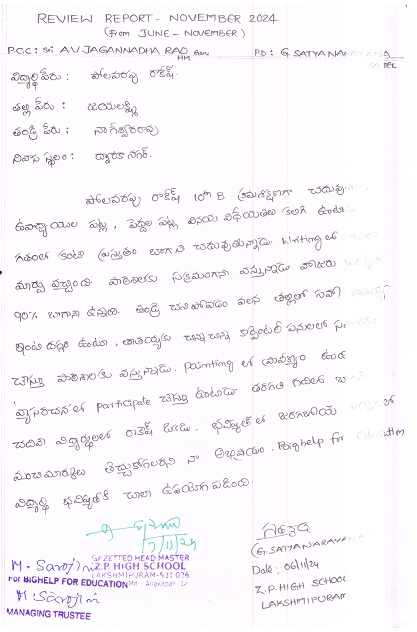 REVIEW REPORT - NOVEMBER 2024
(From JUNE - NOVEMBER)
P.C.C: Sri A.V. JAGANNADHA RAO garu HM P.D: G. SATYANARAYANA
విద్యార్థి పేరు: పోలవరపు రాకేష్.
తల్లి పేరు: జయలక్ష్మి
తండ్రి పేరు: నాగేశ్వరరావు
నివాస స్థలం: ద్వారకా నగర్.
పోలవరపు రాకేష్ 10th B క్రమశిక్షణగా
ఉపాధ్యాయుల పట్ల, పెద్దల పట్ల వినయ విధేయతలు కలిగి
గతంలో కంటే ప్రస్తుతం బాగానే చదువుతున్నాడు. Writing లో
మార్పు వచ్చింది. పాఠశాలకు సక్రమంగానే వస్తున్నాడు హాజరు
90% బాగానే ఉన్నది. తండ్రి చనిపోవడం వలన తల్లితో సహా
ఇంటి దగ్గర ఉంటూ, తాతయ్యకు చిన్న చిన్న కార్పెంటర్ పనులలో
చేస్తూ పాఠశాలకు వస్తున్నాడు. Painting లో ప్రావీణ్యం
వ్యాసరచనలో participate చేస్తూ ఉంటాడు తరగతి గదిలో
చదివే విద్యార్థులలో రాకేష్ ఒకడు. భవిష్యత్ లో జరగబోయే
మంచి మార్కులు తెచ్చుకోగలడని నా అభిప్రాయం. Bighelp for Education
విద్యార్థి భవిష్యత్‌కి చాలా ఉపయోగపడింది.
7/11/24
GAZETTED HEAD MASTER
Z.P. HIGH SCHOOL
LAKSHMIPURAM-531 026
M. Sarojini
For BIGHELP FOR EDUCATION
M Sarojini
MANAGING TRUSTEE
(G. SATYANARAYANA)
Date: 06/11/24
Z.P HIGH SCHOOL
LAKSHMIPURAM